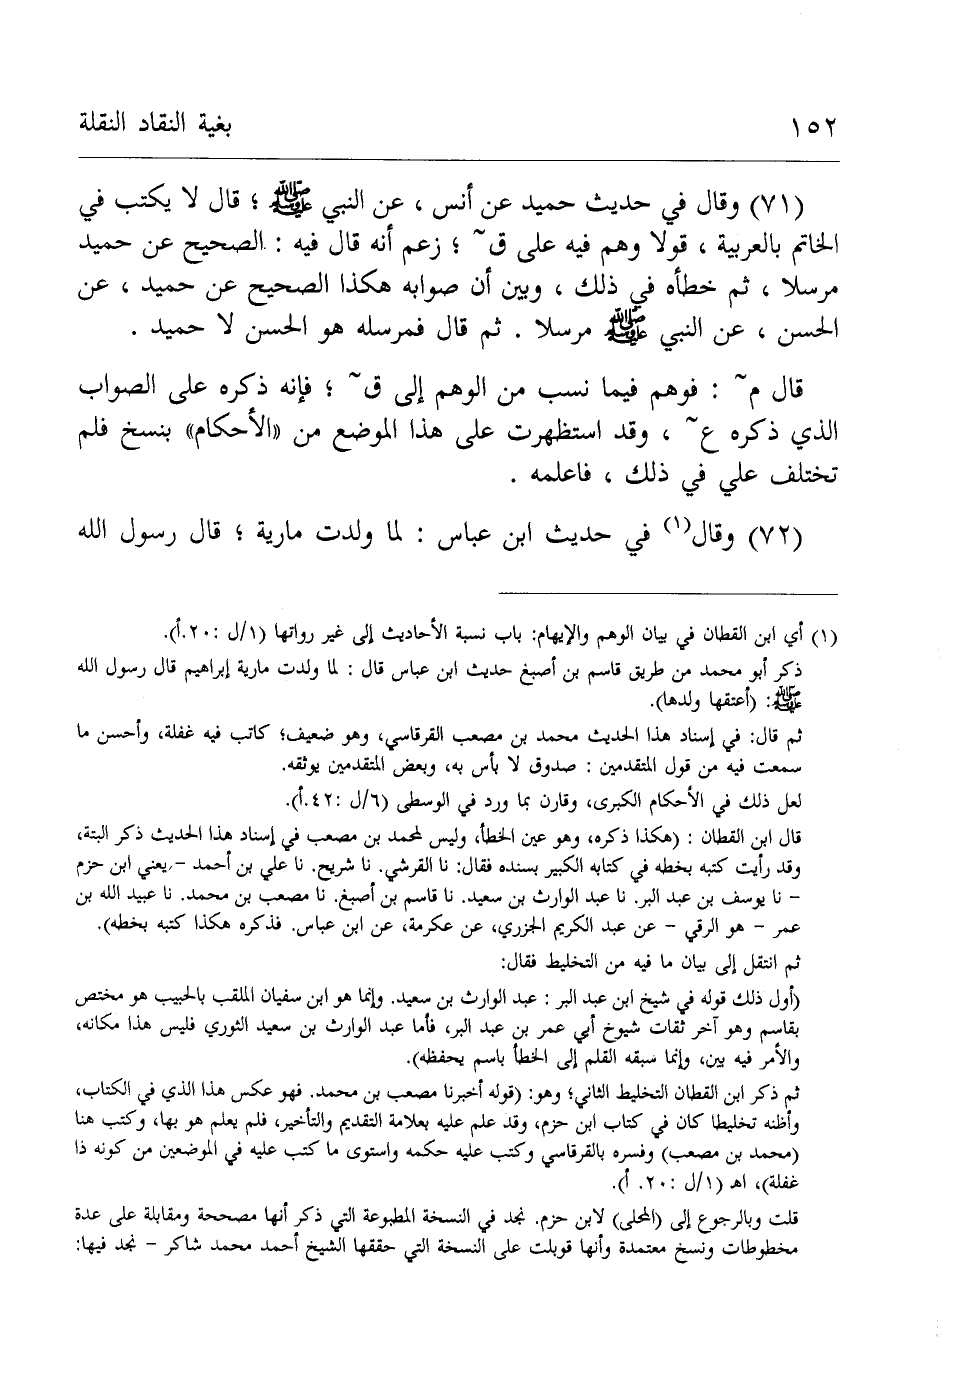 ١٥٢ بغية النقاد النقلة
(٧١) وقال في حديث حميد عن أنس ، عن النبي ﷺ ؛ قال لا يكتب في
الخاتم بالعربية ، قولا وهم فيه على ق~ ؛ زعم أنه قال فيه : الصحيح عن حميد
مرسلا ، ثم خطأه في ذلك ، وبين أن صوابه هكذا الصحيح عن حميد ، عن
الحسن ، عن النبي ﷺ مرسلا . ثم قال فمرسله هو الحسن لا حميد .
قال م~ : فوهم فيما نسب من الوهم إلى ق~ ؛ فإنه ذكره على الصواب
الذي ذكره ع~ ، وقد استظهرت على هذا الموضع من «الأحكام» بنسخ فلم
تختلف علي في ذلك ، فاعلمه .
(٧٢) وقال(١) في حديث ابن عباس : لما ولدت مارية ؛ قال رسول الله
(١) أي ابن القطان في بيان الوهم والإيهام: باب نسبة الأحاديث إلى غير رواتها (١/ل :٢٠.أ).
ذكر أبو محمد من طريق قاسم بن أصبغ حديث ابن عباس قال : لما ولدت مارية إبراهيم قال رسول الله
ﷺ: (أعتقها ولدها).
ثم قال: في إسناد هذا الحديث محمد بن مصعب القرقاسي، وهو ضعيف؛ كاتب فيه غفلة، وأحسن ما
سمعت فيه من قول المتقدمين : صدوق لا بأس به، وبعض المتقدمين يوثقه.
لعل ذلك في الأحكام الكبرى، وقارن بما ورد في الوسطى (٦/ل :٤٢.أ).
قال ابن القطان : (هكذا ذكره، وهو عين الخطأ، وليس لمحمد بن مصعب في إسناد هذا الحديث ذكر البتة،
وقد رأيت كتبه بخطه في كتابه الكبير بسنده فقال: نا القرشي. نا شريح. نا علي بن أحمد -يعني ابن حزم
- نا يوسف بن عبد البر. نا عبد الوارث بن سعيد. نا قاسم بن أصبغ. نا مصعب بن محمد. نا عبيد الله بن
عمر - هو الرقي - عن عبد الكريم الجزري، عن عكرمة، عن ابن عباس. فذكره هكذا كتبه بخطه).
ثم انتقل إلى بيان ما فيه من التخليط فقال:
(أول ذلك قوله في شيخ ابن عبد البر : عبد الوارث بن سعيد. وإنما هو ابن سفيان الملقب بالحبيب هو مختص
بقاسم وهو آخر ثقات شيوخ أبي عمر بن عبد البر، فأما عبد الوارث بن سعيد الثوري فليس هذا مكانه،
والأمر فيه بين، وإنما سبقه القلم إلى الخطأ باسم يحفظه).
ثم ذكر ابن القطان التخليط الثاني؛ وهو: (قوله أخبرنا مصعب بن محمد. فهو عكس هذا الذي في الكتاب،
وأظنه تخليطا كان في كتاب ابن حزم، وقد علم عليه بعلامة التقديم والتأخير، فلم يعلم هو بها، وكتب هنا
(محمد بن مصعب) وفسره بالقرقاسي وكتب عليه حكمه واستوى ما كتب عليه في الموضعين من كونه ذا
غفلة)، اهـ (١/ل :٢٠. أ).
قلت وبالرجوع إلى (المحلى) لابن حزم. نجد في النسخة المطبوعة التي ذكر أنها مصححة ومقابلة على عدة
مخطوطات ونسخ معتمدة وأنها قوبلت على النسخة التي حققها الشيخ أحمد محمد شاكر - نجد فيها: